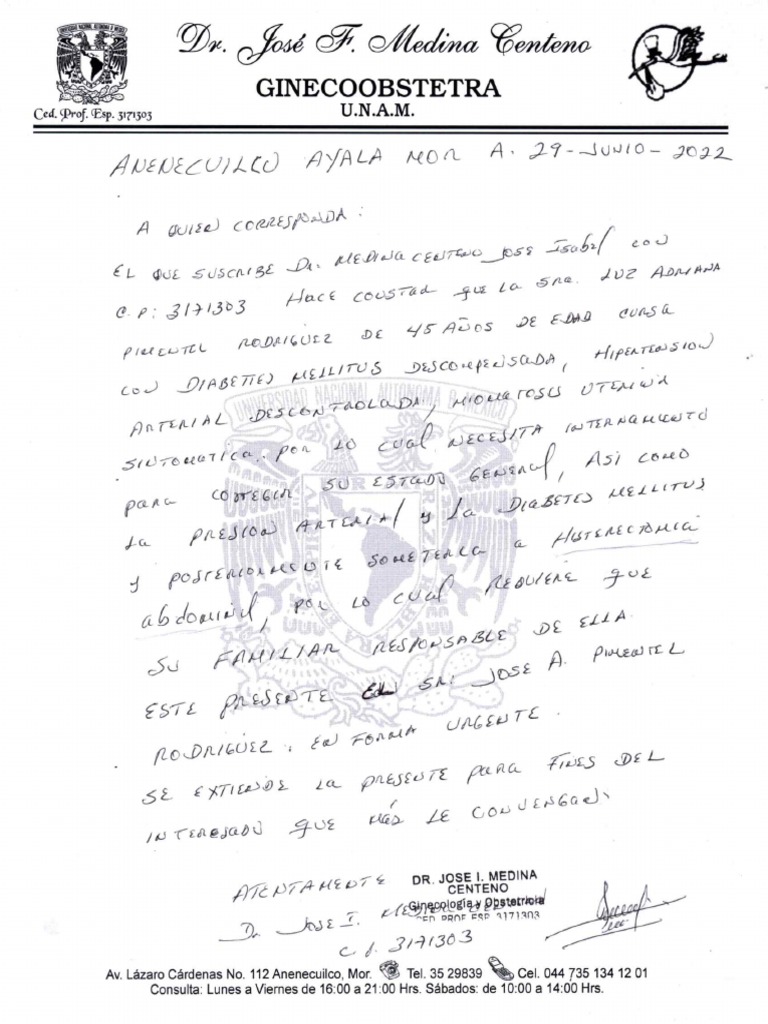 Dr. José F. Medina Centeno
GINECOOBSTETRA
U.N.A.M.
Ced. Prof. Esp. 3171303
ANENECUILCO AYALA MOR A. 29-JUNIO-2022
A QUIEN CORRESPONDA:
EL QUE SUSCRIBE Dr. MEDINA CENTENO JOSE Isabel con
C.P: 3171303 HACE CONSTAR que LA Sra. LUZ ADRIANA
PIMENTEL RODRIGUEZ DE 45 AÑOS DE EDAD CURSA
CON DIABETES MELLITUS DESCOMPENSADA, HIPERTENSION
ARTERIAL DESCONTROLADA, MIOMATOSIS UTERINA
SINTOMATICA. POR LO CUAL NECESITA INTERNAMIENTO
para CORREGIR SU ESTADO GENERAL, ASI COMO
LA PRESION ARTERIAL y LA DIABETES MELLITUS
y POSTERIORMENTE SOMETERLA a HISTERECTOMIA
abdominal, POR LO CUAL REQUIERE QUE
SU FAMILIAR RESPONSABLE DE ELLA.
ESTE PRESENTE EL Sr: JOSE A. PIMENTEL
RODRIGUEZ. EN FORMA URGENTE.
SE EXTIENDE LA PRESENTE para FINES DEL
INTERESADO QUE MÁS LE CONVENGAN.
ATENTAMENTE
DR. JOSE I. MEDINA
CENTENO
Ginecología y Obstetricia
CED. PROF. ESP. 3171303
Dr JOSE I. MEDINA
C.P. 3171303
Av. Lázaro Cárdenas No. 112 Anenecuilco, Mor. Tel. 35 29839 Cel. 044 735 134 12 01
Consulta: Lunes a Viernes de 16:00 a 21:00 Hrs. Sábados: de 10:00 a 14:00 Hrs.